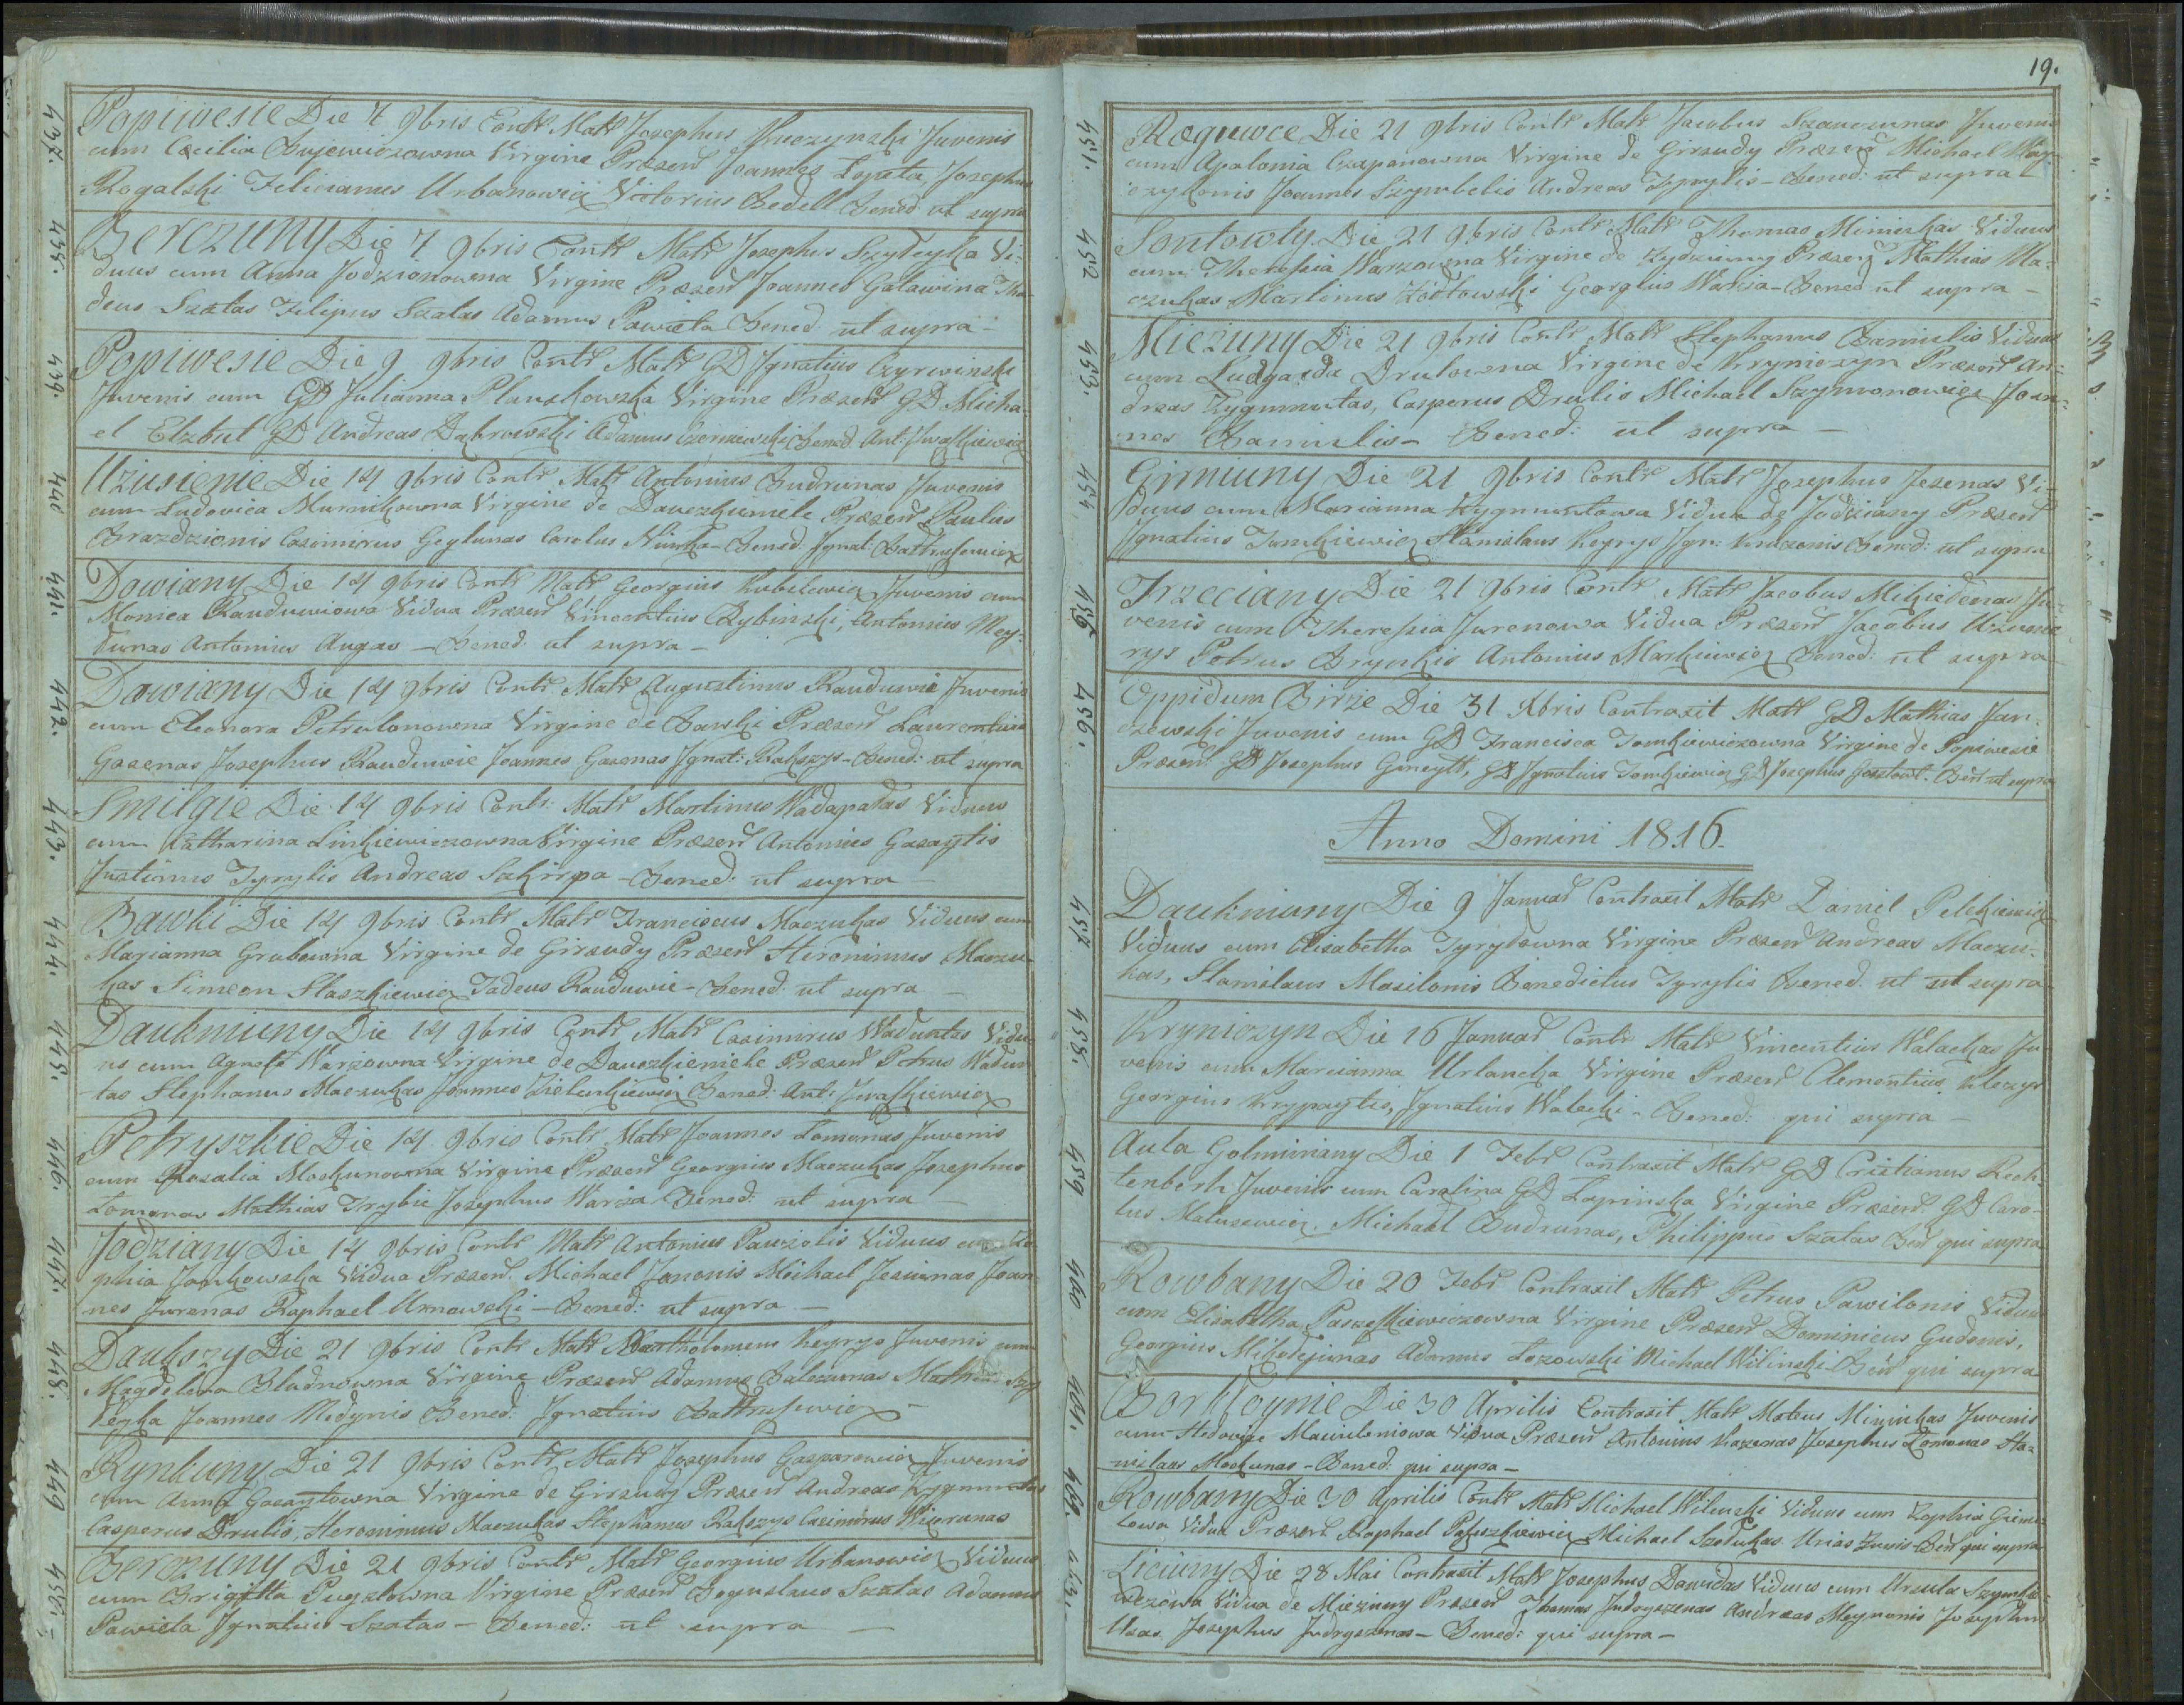 437. Popiwesie Die 7 9bris Contr Matr Josephus Kuczynski Juvenis
cum Cæcilia Bujewiczowna Virgine Præsen Joannes Lopeta Josephus
Rogalski Felicianus Urbanowicz Victorius Bedell Bened: ut supra
438. Berczuny Die 7 9bris Contr Matr Josephus Szyleyka Vi:
duus cum Anna Jodzionowna Virgine Præsen Joannes Galawina Tha-
deus Szatas Filipus Szatas Adamus Pawieta Bened: ut supra -
439. Popiwesie Die 9 9bris Contr Matr GD Ignatius Czyrwinski
Juvenis cum GD Julianna Plauszkowska Virgine Præsen GD Micha-
el Elzbut GD Andreas Dąbrowski Adamus Czerniewski Bened Ant: Iwaszkiewicz
440 Użusienie Die 14 9bris Contr Matr Antonius Budrunas Juvenis
cum Ludovica Murnikowna Virgine de Dauczkiemele Præsen Paulus
Brazdzionis Casimirus Geglunas Carolus Nunka - Bened: Ignat: Baltrusewicz
441. Dowiany Die 14 9bris Contr Matr Georgius Kubilewicz Juvenis cum
Monica Rauduwiowa Vidua Præsen Vincentius Rybinski, Antonius Mey-
lunas Antonius Augas - Bened: ut supra -
442. Dowiany Die 14 9bris Contr Matr Augustinus Rauduwie Juvenis
cum Eleonora Petrulonowna Virgine de Bawski Præsen Laurentius
Gasenas Josephus Rauduwie Joannes Gasenas Ignat: Rakszys - Bened: ut supra
443. Smilgie Die 14 9bris Contr: Matr Martinus Wadapalas Viduus
cum Katharina Linkiewiczowna Virgine Præsen Antonius Gasaytis
Justinus Tyrylis Andreas Szkirpa - Bened: ut supra
444. Bawki Die 14 9bris Contr Matr Franciscus Maczukas Viduus cum
Marianna Grubowna Virgine de Girsudy Præsen Heronimus Maczu-
kas Simeon Staszkiewicz Tadeus Rauduwie - Bened: ut supra -
445. Daukniuny Die 14 9bris Contr Matr Casimirus Waduntas Vidu-
us cum Agnete Warzowna Virgine de Dauczkiemele Præsen Petrus Wadun
-tas Stephanus Maczukas Joannes Zielenkiewicz Bened: Ant: Iwaszkiewicz
446. Petryszkie Die 14 9bris Contr Matr Joannes Lomonas Juvenis
cum Rosalia Moskunowna Virgine Præsen Georgius Maczukas Josephus
Lomonas Mathias Trybie Josephus Warza Bened: ut supra
447. Jodziany Die 14 9bris Contr Matr Antonius Pauzolis Viduus cum
phia Jankowska Vidua Præsen Michael Jononis Michael Jesiunas Joan-
nes Jurenas Raphael Urnowski - Bened: ut supra -
448. Daukszy Die 21 9bris Contr Matr Bartholomeus Keyrys Juvenis cum
Magdelena Bludnowna Virgine Præsen Adamus Balczunas Mathias Szy
leyka Joannes Medynis Bened: Ignatius Baltrusewicz -
449 Rynkuny Die 21 9bris Contr Matr Josephus Gasparowicz Juvenis
cum Anna Gasaytowna Virgine de Girsudy Præsen Andreas Zygmuntas
Casperus Drulis, Heronimus Maczukas Stephanus Rakszys Casimirus Wizerunas
450. Berczuny Die 21 9bris Contr Matr Georgius Urbanowicz Viduus
cum Brigitta Pugzlowna Virgine Præsen Boguslaus Szatas Adamus
Pawiela Ignatius Szatas - Bened: ut supra -
19.
451. Rægiewce Die 21 9bris Contr Matr Jacobus Szauczunas Juvenis
cum Apolonia Czaponowna Virgine de Girsudy Præsen Michael
czykonis Joannes Szymbelis Andreas Tyrylis - Bened: ut supra
452 Sontowty Die 21 9bris Contr Matr Thomas Minieikas Viduus
cum Theressia Warzowna Virgine de Rydziuny Præsen Mathias Ma:
czukas Martinus Zodtowski Georgius Warza - Bened ut supra -
453. Mieżiuny Die 21 9bris Contr Matr Stephanus Bamulis Viduus
cum Ludgarda Drulowna Virgine de Kryniczyn Præsen An:
dreas Zygmuntas, Casperus Drulis Michael Szymonowicz Joan-
nes Bamulis - Bened: ut supra -
454 Girniuny Die 21 9bris Contr Matr Josephus Jesenas Vi-
duus cum Marianna Zygmuntowa Vidua de Jodziany Præsen
Ignatius Tomkiewicz Stanislaus Keyrys Ign: Kruczonis Bened: ut supra
455 Trzeciany Die 21 9bris Contr Matr Jacobus Mikiedonas Ju-
venis cum Theressia Jurenowa Vidua Præsen Jacobus Użume
rys Petrus Brynkis Antonius Markiewicz Bened: ut supra
456. Oppidum Birże Die 31 Xbris Contraxit Matr GD Mathias Jan-
czewski Juvenis cum GD Francisca Tomkiewiczowna Virgine de Popiwesie
Præsen GD Josephus Gineytt, GD Ignatius Tomkiewicz GD Josephus Gosztowt. Ben ut supra
Anno Domini 1816.
457 Daukniuny Die 9 Januar Contraxit Matr Daniel Pelekiewicz
Viduus cum Elisabetha Tyrylowna Virgine Præsen Andreas Maczu-
kas, Stanislaus Masilonis Benedictus Tyrylis Bened: ut ut supra
458. Kryniczyn Die 16 Januar Contr Matr Vincentius Walackas Ju
venis cum Marcianna Urlancka Virgine Præsen Clementius Kleczys
Georgius Krypaytis, Ignatius Walecki - Bened: qui supra -
459 Aula Golminiany Die 1 Febr Contraxit Matr GD Cristianus Rech-
tenberh Juvenis cum Carolina GD Lapinska Virgine Præsen: GD Caro-
lus Matusewicz. Michael Budrunas, Philippus Szatas Ben qui supra
460 Rowbany Die 20 Febr Contraxit Matr Petrus Pawilonis Viduus
cum Elisabetha Paszkiewiczowna Virgine Præsen Dominicus Gudonis,
Georgius Mikodejunas Adamus Lozowski Michael Wilinski Ben qui supra
461. Borkłoynie Die 30 Aprilis Contraxit Matr Mateus Mininkas Juvenis
cum Hedvige Mauileniowa Vidua Præsen Antonius Kazenas Josephus Lomonas Sta-
nislaus Mockunas - Bened: qui supra -
462. Rowbany Die 30 Aprilis Contr Matr Michael Wilinski Viduus cum Zophia
lowa Vidua Præsen Raphael Paszkiewicz Michael Szolukas Urias Ben qui supra
463. Liciuny Die 28 Mai Contraxit Matr Josephus Dawidas Viduus cum Ursula
Vidua de Mieżiuny Præsen Thomas Judryszenas Andreas Meynonis Josephus
Uzas Josephus Judryszenas - Bened: qui supra -